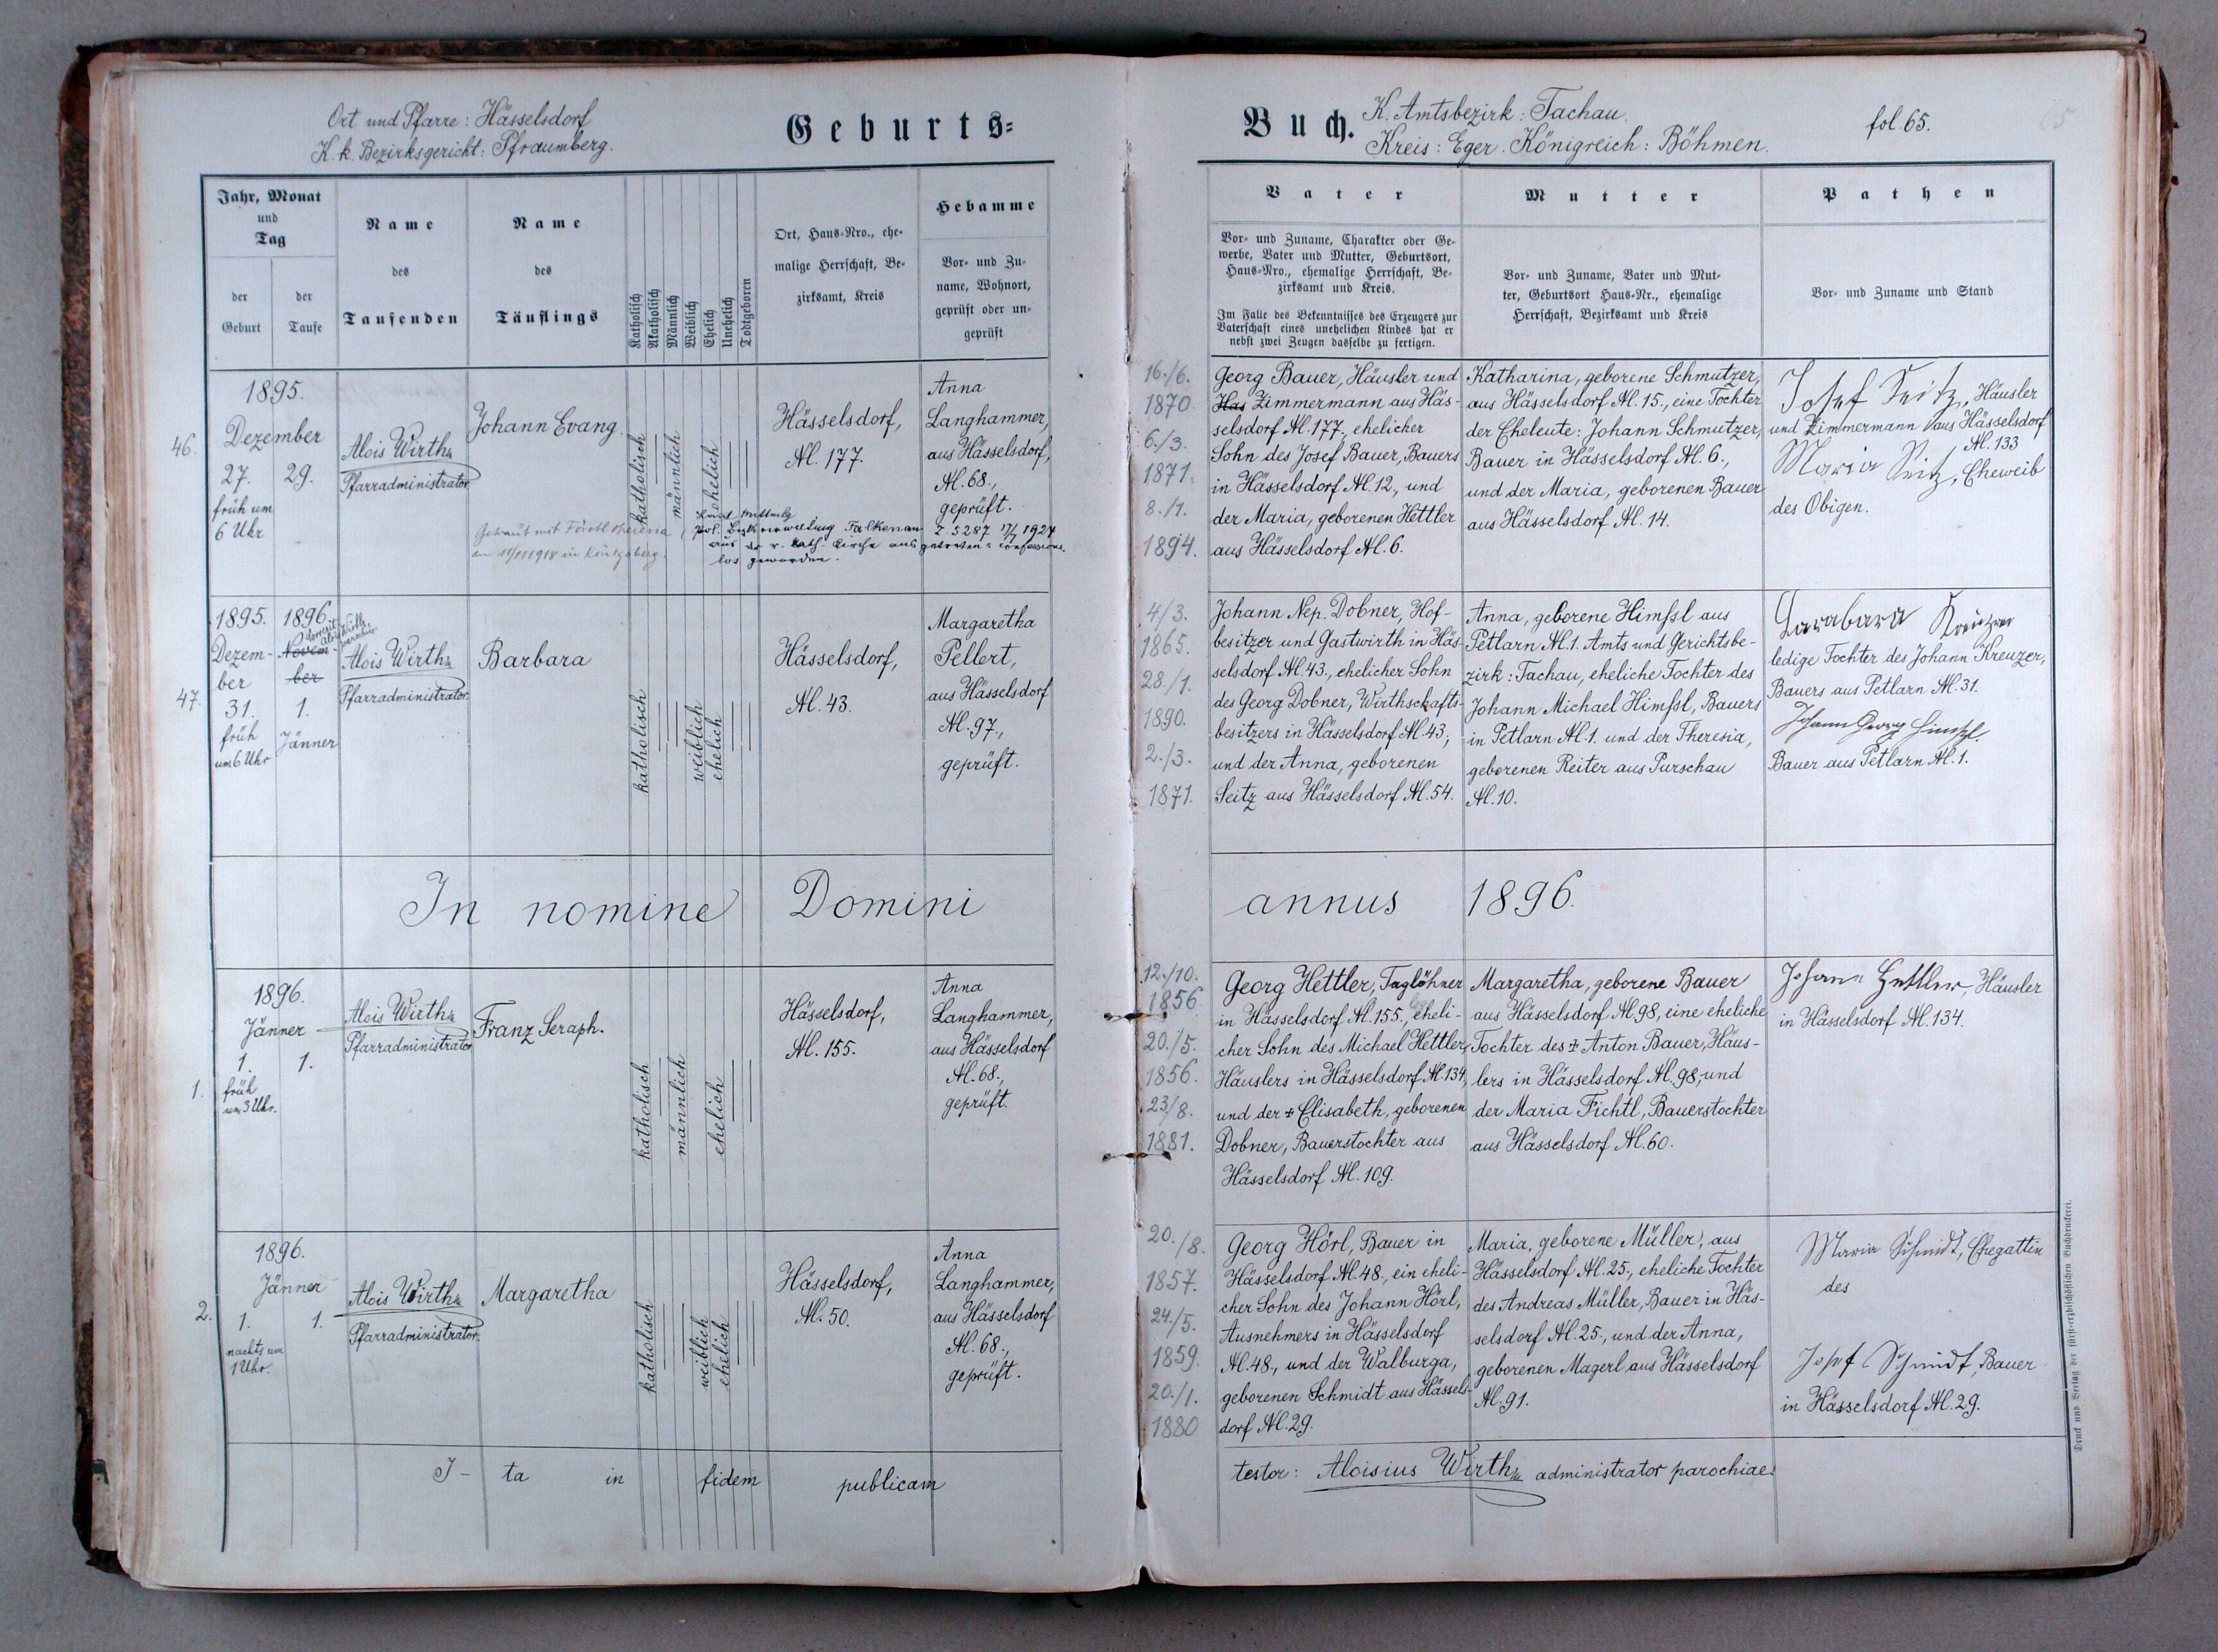 Ort und Pfarre: Hässelsdorf
K. k. Bezirksgericht: Pfraumberg.
Geburts=
Jahr, Monat
und
Tag
der
Geburt
der
Taufe
Name
des
Taufenden
Name
des
Täuflings
Katholisch
Akatholisch
Männlich
Weiblich
Ehelich
Unehelich
Todtgeboren
Ort, Haus-Nro., ehe-
malige Herrschaft, Be-
zirksamt, Kreis
Hebamme
Vor- und Zu-
name, Wohnort,
geprüft oder un-
geprüft
46.
1895.
Dezember
27. 29.
früh um
6 Uhr
Alois Wirth
Pfarradministrator
Johann Evang.
Getraut mit
in Königsberg.
katholisch
männlich
ehelich
Falkenau Z. 5287 17/7 1924
aus der r. kath. Kirche ausgetreten = confessions-
los geworden.
Hässelsdorf,
N. 177.
Anna
Langhammer,
aus Hässelsdorf,
N. 68.,
geprüft.
47.
1895. 1896.
Dezem-
ber
31.
früh
um 6 Uhr
Novem-
ber
1.
Jänner
Alois Wirth
Pfarradministrator.
Barbara
katholisch
weiblich
ehelich
Hässelsdorf,
N. 43.
Margaretha
Pellert,
aus Hässelsdorf
N. 97.,
geprüft.
In nomine Domini
1.
1896.
Jänner
1. 1.
früh
um 3 Uhr.
Alois Wirth
Pfarradministrator
Franz Seraph.
katholisch
männlich
ehelich
Hässelsdorf,
N. 155.
Anna
Langhammer,
aus Hässelsdorf
N. 68.,
geprüft.
2.
1896.
Jänner
1. 1.
nachts um
1 Uhr.
Alois Wirth
Pfarradministrator.
Margaretha
katholisch
weiblich
ehelich
Hässelsdorf,
N. 50.
Anna
Langhammer,
aus Hässelsdorf
N. 68.,
geprüft.
I- ta in fidem publicam
Buch.
K. Amtsbezirk: Tachau.
Kreis: Eger. Königreich: Böhmen.
fol. 65.
65
Vater
Vor- und Zuname, Charakter oder Ge-
werbe, Vater und Mutter, Geburtsort,
Haus-Nro., ehemalige Herrschaft, Be-
zirksamt und Kreis.
Im Falle des Bekenntnisses des Erzeugers zur
Vaterschaft eines unehelichen Kindes hat er
nebst zwei Zeugen dasselbe zu fertigen.
Mutter
Vor- und Zuname, Vater und Mut-
ter, Geburtsort Haus-Nr., ehemalige
Herrschaft, Bezirksamt und Kreis
Pathen
Vor- und Zuname und Stand
16./6.
1870.
6./3.
1871.
8./1.
1894.
Georg Bauer, Häusler und
Has Zimmermann aus Häs-
selsdorf N. 177., ehelicher
Sohn des Josef Bauer, Bauers
in Hässelsdorf N. 12., und
der Maria, geborenen Hettler
aus Hässelsdorf N. 6.
Katharina, geborene Schmutzer,
aus Hässelsdorf N. 15., eine Tochter
der Eheleute: Johann Schmutzer,
Bauer in Hässelsdorf N. 6.,
und der Maria, geborenen Bauer
aus Hässelsdorf N. 14.
Josef Seitz, Häusler
und Zimmermann aus Hässelsdorf
N. 133
Maria Seitz, Eheweib
des Obigen.
4/3.
1865.
28./1.
1890.
2./3.
1871.
Johann Nep. Dobner, Hof-
besitzer und Gastwirth in Häs-
selsdorf N. 43., ehelicher Sohn
des Georg Dobner, Wirthschafts-
besitzers in Hässelsdorf N. 43.,
und der Anna, geborenen
Seitz aus Hässelsdorf N. 54.
Anna, geborene Himßl aus
Petlarn N. 1. Amts und Gerichtsbe-
zirk: Tachau, eheliche Tochter des
Johann Michael Himßl, Bauers
in Petlarn N. 1. und der Theresia,
geborenen Reiter aus Purschau
N. 10.
Barabara Kreuzer
ledige Tochter des Johann Kreuzer,
Bauers aus Petlarn N. 31.
Johann Georg Himßl.
Bauer aus Petlarn N. 1.
annus 1896.
12./10.
1856.
20./5.
1856.
23/8.
1881.
Georg Hettler, Taglöhner
in Hässelsdorf N. 155., eheli-
cher Sohn des Michael Hettler,
Häuslers in Hässelsdorf N. 134,
und der ✝ Elisabeth, geborenen
Dobner, Bauerstochter aus
Hässelsdorf N. 109.
Margaretha, geborene Bauer
aus Hässelsdorf N. 98, eine eheliche
Tochter des ✝ Anton Bauer, Häus-
lers in Hässelsdorf N. 98, und
der Maria Fichtl, Bauerstochter
aus Hässelsdorf N. 60.
Johann Hettler, Häusler
in Hässelsdorf N. 134.
20./8.
1857.
24/5.
1859.
20./1.
1880
Georg Hörl, Bauer in
Hässelsdorf N. 48., ein eheli-
cher Sohn des Johann Hörl,
Ausnehmers in Hässelsdorf
N. 48., und der Walburga,
geborenen Schmidt aus Hässels-
dorf N. 29.
Maria, geborene Müller, aus
Hässelsdorf N. 25., eheliche Tochter
des Andreas Müller, Bauer in Häs-
selsdorf N. 25., und der Anna,
geborenen Magerl aus Hässelsdorf
N. 91.
Maria Schmidt, Ehegattin
des
Josef Schmidt, Bauer
in Hässelsdorf N. 29.
testor: Aloisius Wirth administrator parochiae.
Druck und Verlag der fürst-erzbischöflichen Buchdruckerei.